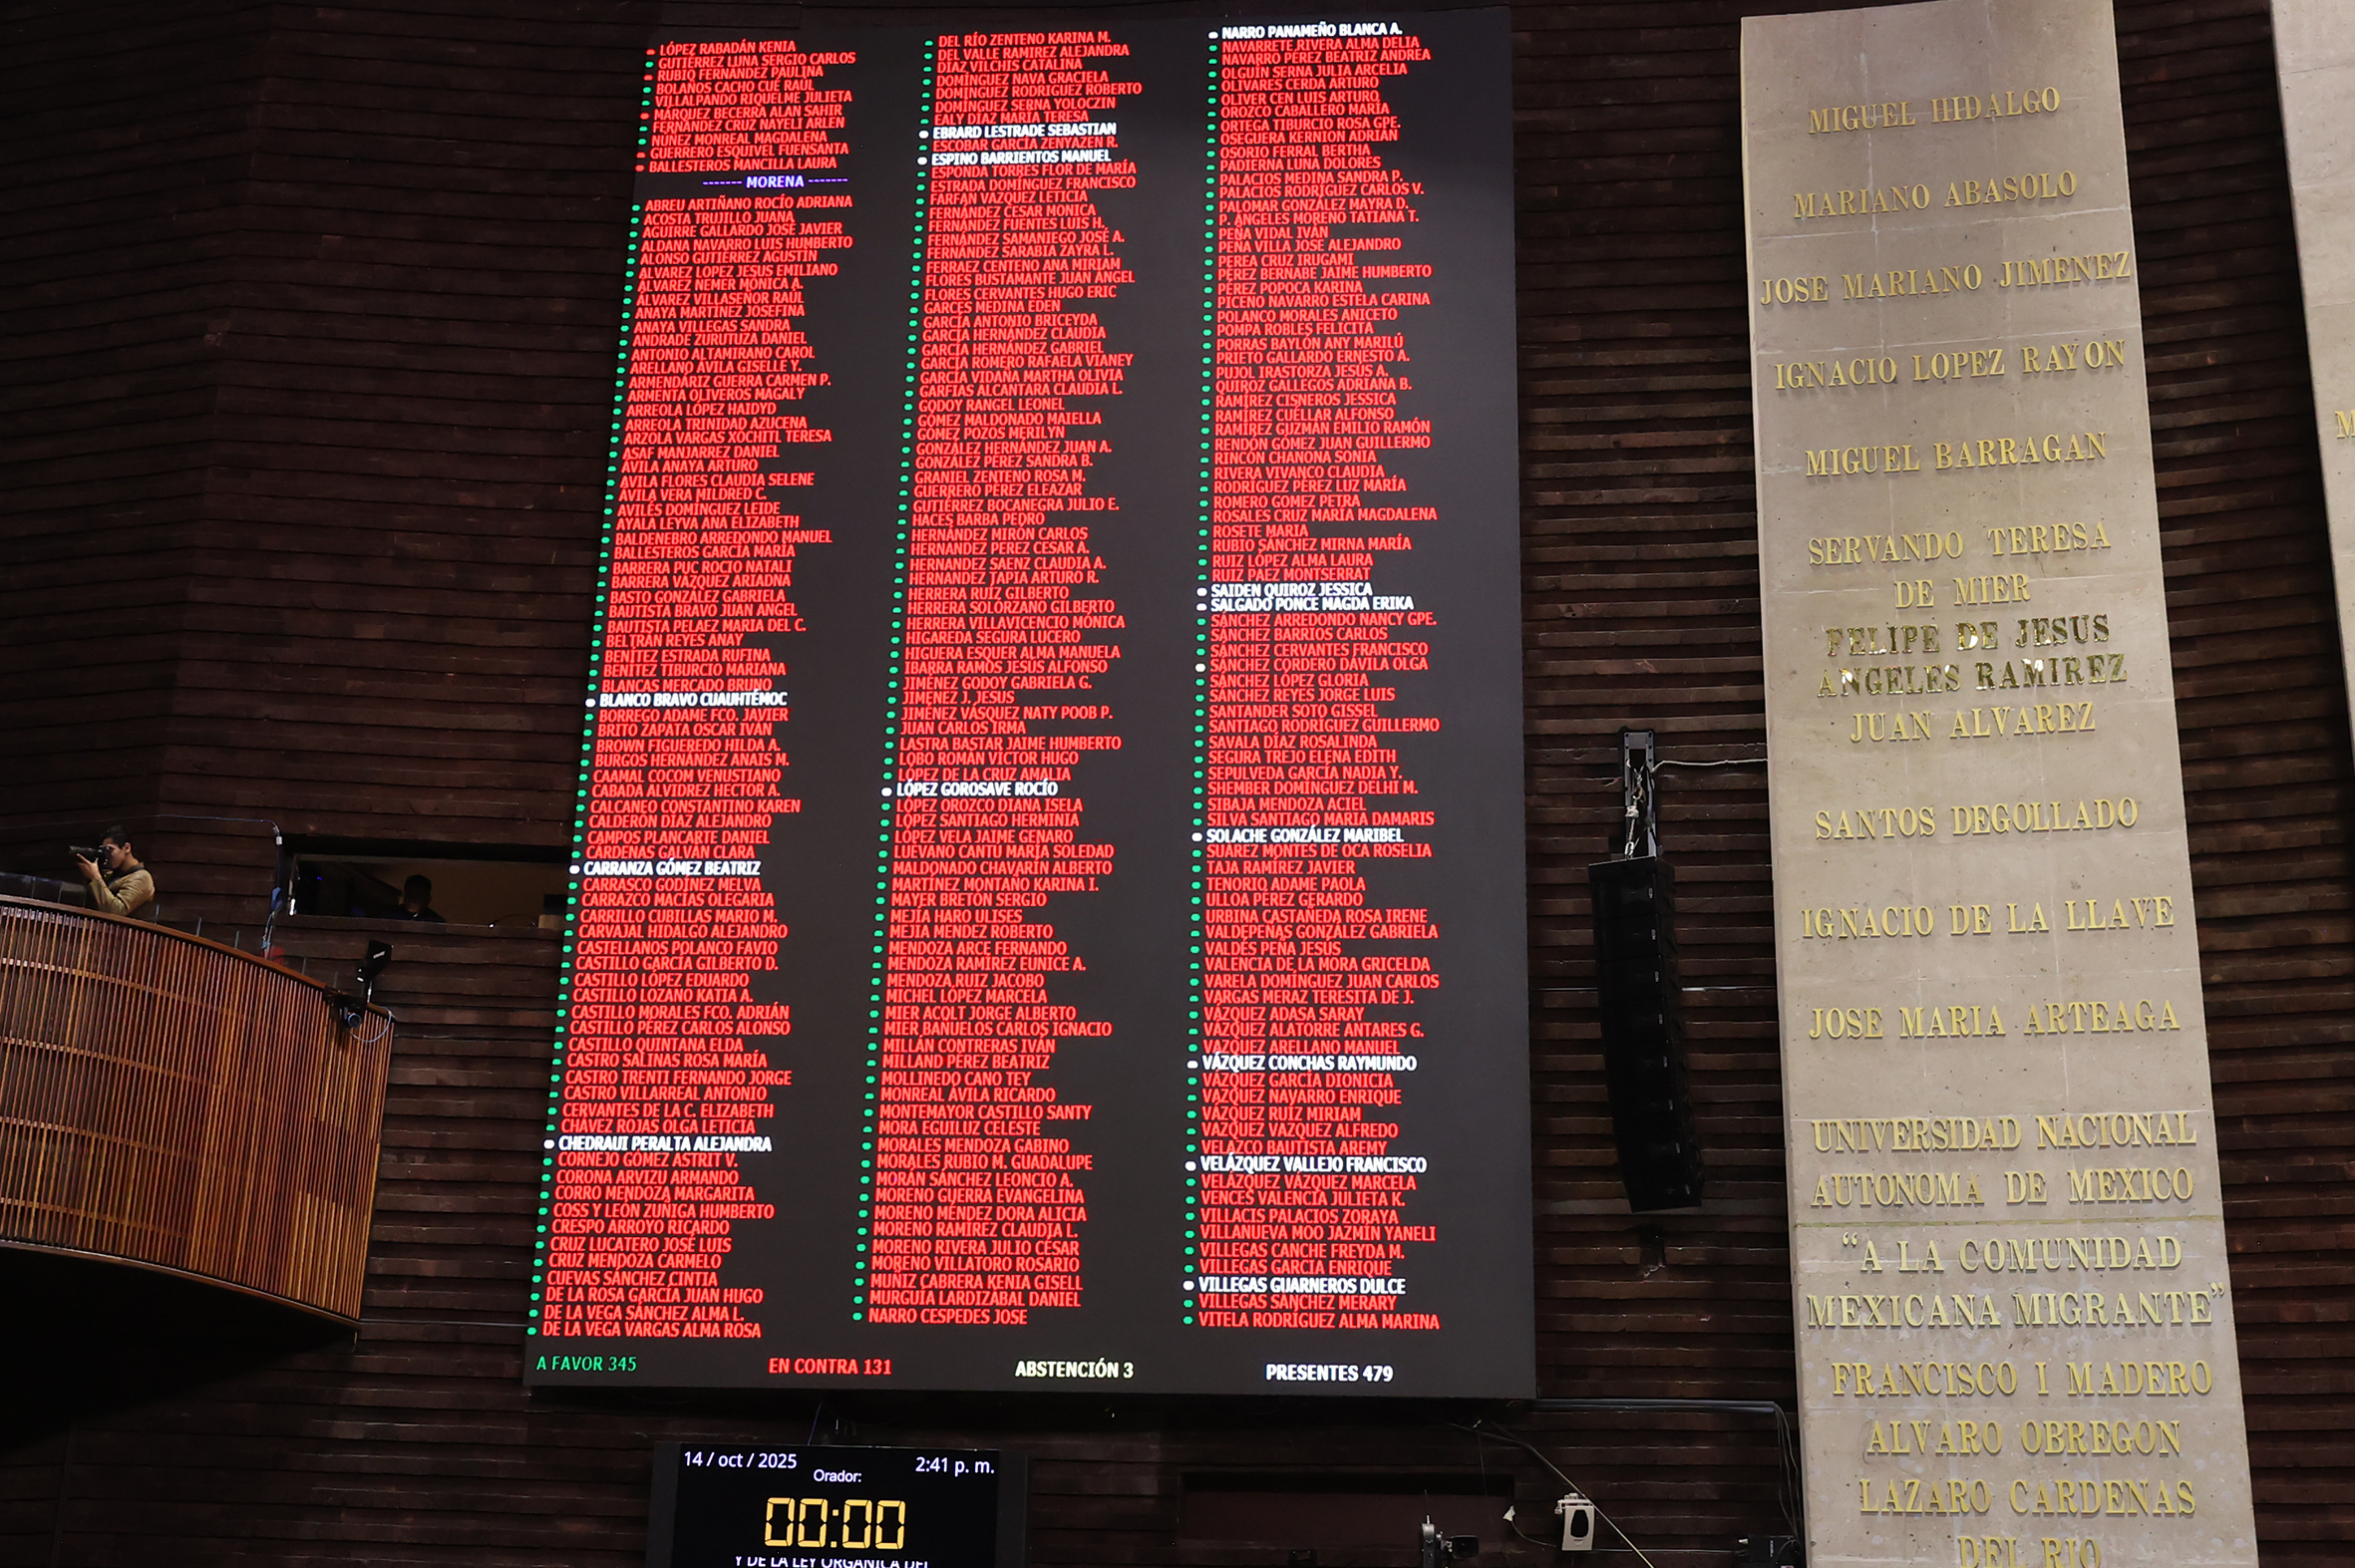 LÓPEZ RABADÁN KENIA
GUTIÉRREZ LUNA SERGIO CARLOS
RUBIO FERNÁNDEZ PAULINA
BOLAÑOS CACHO CUÉ RAÚL
VILLALPANDO RIQUELME JULIETA
MÁRQUEZ BECERRA ALAN SAHIR
FERNÁNDEZ CRUZ NAYELI ARLEN
NÚÑEZ MONREAL MAGDALENA
GUERRERO ESQUIVEL FUENSANTA
BALLESTEROS MANCILLA LAURA
------- MORENA -------
ABREU ARTIÑANO ROCÍO ADRIANA
ACOSTA TRUJILLO JUANA
AGUIRRE GALLARDO JOSÉ JAVIER
ALDANA NAVARRO LUIS HUMBERTO
ALONSO GUTIÉRREZ AGUSTÍN
ÁLVAREZ LÓPEZ JESÚS EMILIANO
ÁLVAREZ NEMER MÓNICA A.
ÁLVAREZ VILLASEÑOR RAÚL
ANAYA MARTÍNEZ JOSEFINA
ANAYA VILLEGAS SANDRA
ANDRADE ZURUTUZA DANIEL
ANTONIO ALTAMIRANO CAROL
ARELLANO ÁVILA GISELLE Y.
ARMENDÁRIZ GUERRA CARMEN P.
ARMENTA OLIVEROS MAGALY
ARREOLA LÓPEZ HAIDYD
ARREOLA TRINIDAD AZUCENA
ARZOLA VARGAS XOCHITL TERESA
ASAF MANJARREZ DANIEL
ÁVILA ANAYA ARTURO
ÁVILA FLORES CLAUDIA SELENE
ÁVILA VERA MILDRED C.
AVILÉS DOMÍNGUEZ LEIDE
AYALA LEYVA ANA ELIZABETH
BALDENEBRO ARREDONDO MANUEL
BALLESTEROS GARCÍA MARÍA
BARRERA PUC ROCÍO NATALI
BARRERA VÁZQUEZ ARIADNA
BASTO GONZÁLEZ GABRIELA
BAUTISTA BRAVO JUAN ÁNGEL
BAUTISTA PELÁEZ MARÍA DEL C.
BELTRÁN REYES ANAY
BENÍTEZ ESTRADA RUFINA
BENÍTEZ TIBURCIO MARIANA
BLANCAS MERCADO BRUNO
BLANCO BRAVO CUAUHTÉMOC
BORREGO ADAME FCO. JAVIER
BRITO ZAPATA OSCAR IVÁN
BROWN FIGUEREDO HILDA A.
BURGOS HERNÁNDEZ ANAIS M.
CAAMAL COCOM VENUSTIANO
CABADA ALVIDREZ HÉCTOR A.
CALCÁNEO CONSTANTINO KAREN
CALDERÓN DÍAZ ALEJANDRO
CAMPOS PLANCARTE DANIEL
CÁRDENAS GALVÁN CLARA
CARRANZA GÓMEZ BEATRIZ
CARRASCO GODÍNEZ MELVA
CARRAZCO MACÍAS OLEGARIA
CARRILLO CUBILLAS MARIO M.
CARVAJAL HIDALGO ALEJANDRO
CASTELLANOS POLANCO FAVIO
CASTILLO GARCÍA GILBERTO D.
CASTILLO LÓPEZ EDUARDO
CASTILLO LOZANO KATIA A.
CASTILLO MORALES FCO. ADRIÁN
CASTILLO PÉREZ CARLOS ALONSO
CASTILLO QUINTANA ELDA
CASTRO SALINAS ROSA MARÍA
CASTRO TRENTI FERNANDO JORGE
CASTRO VILLARREAL ANTONIO
CERVANTES DE LA C. ELIZABETH
CHÁVEZ ROJAS OLGA LETICIA
CHEDRAUI PERALTA ALEJANDRA
CORNEJO GÓMEZ ASTRIT V.
CORONA ARVIZU ARMANDO
CORRO MENDOZA MARGARITA
COSS Y LEÓN ZÚÑIGA HUMBERTO
CRESPO ARROYO RICARDO
CRUZ LUCATERO JOSÉ LUIS
CRUZ MENDOZA CARMELO
CUEVAS SÁNCHEZ CINTIA
DE LA ROSA GARCÍA JUAN HUGO
DE LA VEGA SÁNCHEZ ALMA L.
DE LA VEGA VARGAS ALMA ROSA
DEL RÍO ZENTENO KARINA M.
DEL VALLE RAMÍREZ ALEJANDRA
DÍAZ VILCHIS CATALINA
DOMÍNGUEZ NAVA GRACIELA
DOMÍNGUEZ RODRÍGUEZ ROBERTO
DOMÍNGUEZ SERNA YOLOCZIN
EALY DÍAZ MARÍA TERESA
EBRARD LESTRADE SEBASTIAN
ESCOBAR GARCÍA ZENYAZEN R.
ESPINO BARRIENTOS MANUEL
ESPONDA TORRES FLOR DE MARÍA
ESTRADA DOMÍNGUEZ FRANCISCO
FARFÁN VÁZQUEZ LETICIA
FERNÁNDEZ CÉSAR MÓNICA
FERNÁNDEZ FUENTES LUIS H.
FERNÁNDEZ SAMANIEGO JOSÉ A.
FERNÁNDEZ SARABIA ZAYRA L.
FERRAEZ CENTENO ANA MIRIAM
FLORES BUSTAMANTE JUAN ÁNGEL
FLORES CERVANTES HUGO ERIC
GARCÉS MEDINA EDEN
GARCÍA ANTONIO BRICEYDA
GARCÍA HERNÁNDEZ CLAUDIA
GARCÍA HERNÁNDEZ GABRIEL
GARCÍA ROMERO RAFAELA VIANEY
GARCÍA VIDAÑA MARTHA OLIVIA
GARFIAS ALCÁNTARA CLAUDIA L.
GODOY RANGEL LEONEL
GÓMEZ MALDONADO MAIELLA
GÓMEZ POZOS MERILYN
GONZÁLEZ HERNÁNDEZ JUAN A.
GONZÁLEZ PÉREZ SANDRA B.
GRANIEL ZENTENO ROSA M.
GUERRERO PÉREZ ELEAZAR
GUTIÉRREZ BOCANEGRA JULIO E.
HACES BARBA PEDRO
HERNÁNDEZ MIRÓN CARLOS
HERNÁNDEZ PÉREZ CÉSAR A.
HERNÁNDEZ SÁENZ CLAUDIA A.
HERNÁNDEZ TAPIA ARTURO R.
HERRERA RUÍZ GILBERTO
HERRERA SOLÓRZANO GILBERTO
HERRERA VILLAVICENCIO MÓNICA
HIGAREDA SEGURA LUCERO
HIGUERA ESQUER ALMA MANUELA
IBARRA RAMOS JESÚS ALFONSO
JIMÉNEZ GODOY GABRIELA G.
JIMÉNEZ J. JESÚS
JIMÉNEZ VÁSQUEZ NATY POOB P.
JUAN CARLOS IRMA
LASTRA BASTAR JAIME HUMBERTO
LOBO ROMÁN VÍCTOR HUGO
LÓPEZ DE LA CRUZ AMALIA
LÓPEZ GOROSAVE ROCÍO
LÓPEZ OROZCO DIANA ISELA
LÓPEZ SANTIAGO HERMINIA
LÓPEZ VELA JAIME GENARO
LUÉVANO CANTÚ MARÍA SOLEDAD
MALDONADO CHAVARÍN ALBERTO
MARTÍNEZ MONTAÑO KARINA I.
MAYER BRETÓN SERGIO
MEJÍA HARO ULISES
MEJÍA MÉNDEZ ROBERTO
MENDOZA ARCE FERNANDO
MENDOZA RAMÍREZ EUNICE A.
MENDOZA RUIZ JACOBO
MICHEL LÓPEZ MARCELA
MIER ACOLT JORGE ALBERTO
MIER BAÑUELOS CARLOS IGNACIO
MILLÁN CONTRERAS IVÁN
MILLAND PÉREZ BEATRIZ
MOLLINEDO CANO TEY
MONREAL ÁVILA RICARDO
MONTEMAYOR CASTILLO SANTY
MORA EGUILUZ CELESTE
MORALES MENDOZA GABINO
MORALES RUBIO M. GUADALUPE
MORÁN SÁNCHEZ LEONCIO A.
MORENO GUERRA EVANGELINA
MORENO MÉNDEZ DORA ALICIA
MORENO RAMÍREZ CLAUDIA L.
MORENO RIVERA JULIO CÉSAR
MORENO VILLATORO ROSARIO
MUÑIZ CABRERA KENIA GISELL
MURGUÍA LARDIZÁBAL DANIEL
NARRO CÉSPEDES JOSÉ
NARRO PANAMEÑO BLANCA A.
NAVARRETE RIVERA ALMA DELIA
NAVARRO PÉREZ BEATRIZ ANDREA
OLGUÍN SERNA JULIA ARCELIA
OLIVARES CERDA ARTURO
OLIVER CEN LUIS ARTURO
OROZCO CABALLERO MARÍA
ORTEGA TIBURCIO ROSA GPE.
OSEGUERA KERNION ADRIÁN
OSORIO FERRAL BERTHA
PADIERNA LUNA DOLORES
PALACIOS MEDINA SANDRA P.
PALACIOS RODRÍGUEZ CARLOS V.
PALOMAR GONZÁLEZ MAYRA D.
P. ÁNGELES MORENO TATIANA T.
PEÑA VIDAL IVÁN
PEÑA VILLA JOSÉ ALEJANDRO
PEREA CRUZ IRUGAMI
PÉREZ BERNABE JAIME HUMBERTO
PÉREZ POPOCA KARINA
PICENO NAVARRO ESTELA CARINA
POLANCO MORALES ANICETO
POMPA ROBLES FELÍCITA
PORRAS BAYLÓN ANY MARILÚ
PRIETO GALLARDO ERNESTO A.
PUJOL IRASTORZA JESÚS A.
QUIROZ GALLEGOS ADRIANA B.
RAMÍREZ CISNEROS JESSICA
RAMÍREZ CUÉLLAR ALFONSO
RAMÍREZ GUZMÁN EMILIO RAMÓN
RENDÓN GÓMEZ JUAN GUILLERMO
RINCÓN CHANONA SONIA
RIVERA VIVANCO CLAUDIA
RODRÍGUEZ PÉREZ LUZ MARÍA
ROMERO GÓMEZ PETRA
ROSALES CRUZ MARÍA MAGDALENA
ROSETE MARÍA
RUBIO SÁNCHEZ MIRNA MARÍA
RUIZ LÓPEZ ALMA LAURA
RUIZ PÁEZ MONTSERRAT
SAIDEN QUIROZ JESSICA
SALGADO PONCE MAGDA ERIKA
SÁNCHEZ ARREDONDO NANCY GPE.
SÁNCHEZ BARRIOS CARLOS
SÁNCHEZ CERVANTES FRANCISCO
SÁNCHEZ CORDERO DÁVILA OLGA
SÁNCHEZ LÓPEZ GLORIA
SÁNCHEZ REYES JORGE LUIS
SANTANDER SOTO GISSEL
SANTIAGO RODRÍGUEZ GUILLERMO
SAVALA DÍAZ ROSALINDA
SEGURA TREJO ELENA EDITH
SEPÚLVEDA GARCÍA NADIA Y.
SHEMBER DOMÍNGUEZ DELHI M.
SIBAJA MENDOZA ACIEL
SILVA SANTIAGO MARÍA DAMARIS
SOLACHE GONZÁLEZ MARIBEL
SUÁREZ MONTES DE OCA ROSELIA
TAJA RAMÍREZ JAVIER
TENORIO ADAME PAOLA
ULLOA PÉREZ GERARDO
URBINA CASTAÑEDA ROSA IRENE
VALDEPEÑAS GONZÁLEZ GABRIELA
VALDÉS PEÑA JESÚS
VALENCIA DE LA MORA GRICELDA
VARELA DOMÍNGUEZ JUAN CARLOS
VARGAS MERAZ TERESITA DE J.
VÁZQUEZ ADASA SARAY
VÁZQUEZ ALATORRE ANTARES G.
VÁZQUEZ ARELLANO MANUEL
VÁZQUEZ CONCHAS RAYMUNDO
VÁZQUEZ GARCÍA DIONICIA
VÁZQUEZ NAVARRO ENRIQUE
VÁZQUEZ RUÍZ MIRIAM
VÁZQUEZ VÁZQUEZ ALFREDO
VELAZCO BAUTISTA AREMY
VELÁZQUEZ VALLEJO FRANCISCO
VELÁZQUEZ VÁZQUEZ MARCELA
VENCES VALENCIA JULIETA K.
VILLACIS PALACIOS ZORAYA
VILLANUEVA MOO JAZMÍN YANELI
VILLEGAS CANCHE FREYDA M.
VILLEGAS GARCÍA ENRIQUE
VILLEGAS GUARNEROS DULCE
VILLEGAS SÁNCHEZ MERARY
VITELA RODRÍGUEZ ALMA MARINA
A FAVOR 345 EN CONTRA 131 ABSTENCIÓN 3 PRESENTES 479
14 / oct / 2025 2:41 p. m.
Orador:
00:00
Y DE LA LEY ORGÁNICA DEL
MIGUEL HIDALGO
MARIANO ABASOLO
JOSE MARIANO JIMENEZ
IGNACIO LOPEZ RAYON
MIGUEL BARRAGAN
SERVANDO TERESA
DE MIER
FELIPE DE JESUS
ANGELES RAMIREZ
JUAN ALVAREZ
SANTOS DEGOLLADO
IGNACIO DE LA LLAVE
JOSE MARIA ARTEAGA
UNIVERSIDAD NACIONAL
AUTONOMA DE MEXICO
“A LA COMUNIDAD
MEXICANA MIGRANTE”
FRANCISCO I MADERO
ALVARO OBREGON
LAZARO CARDENAS
DEL RIO